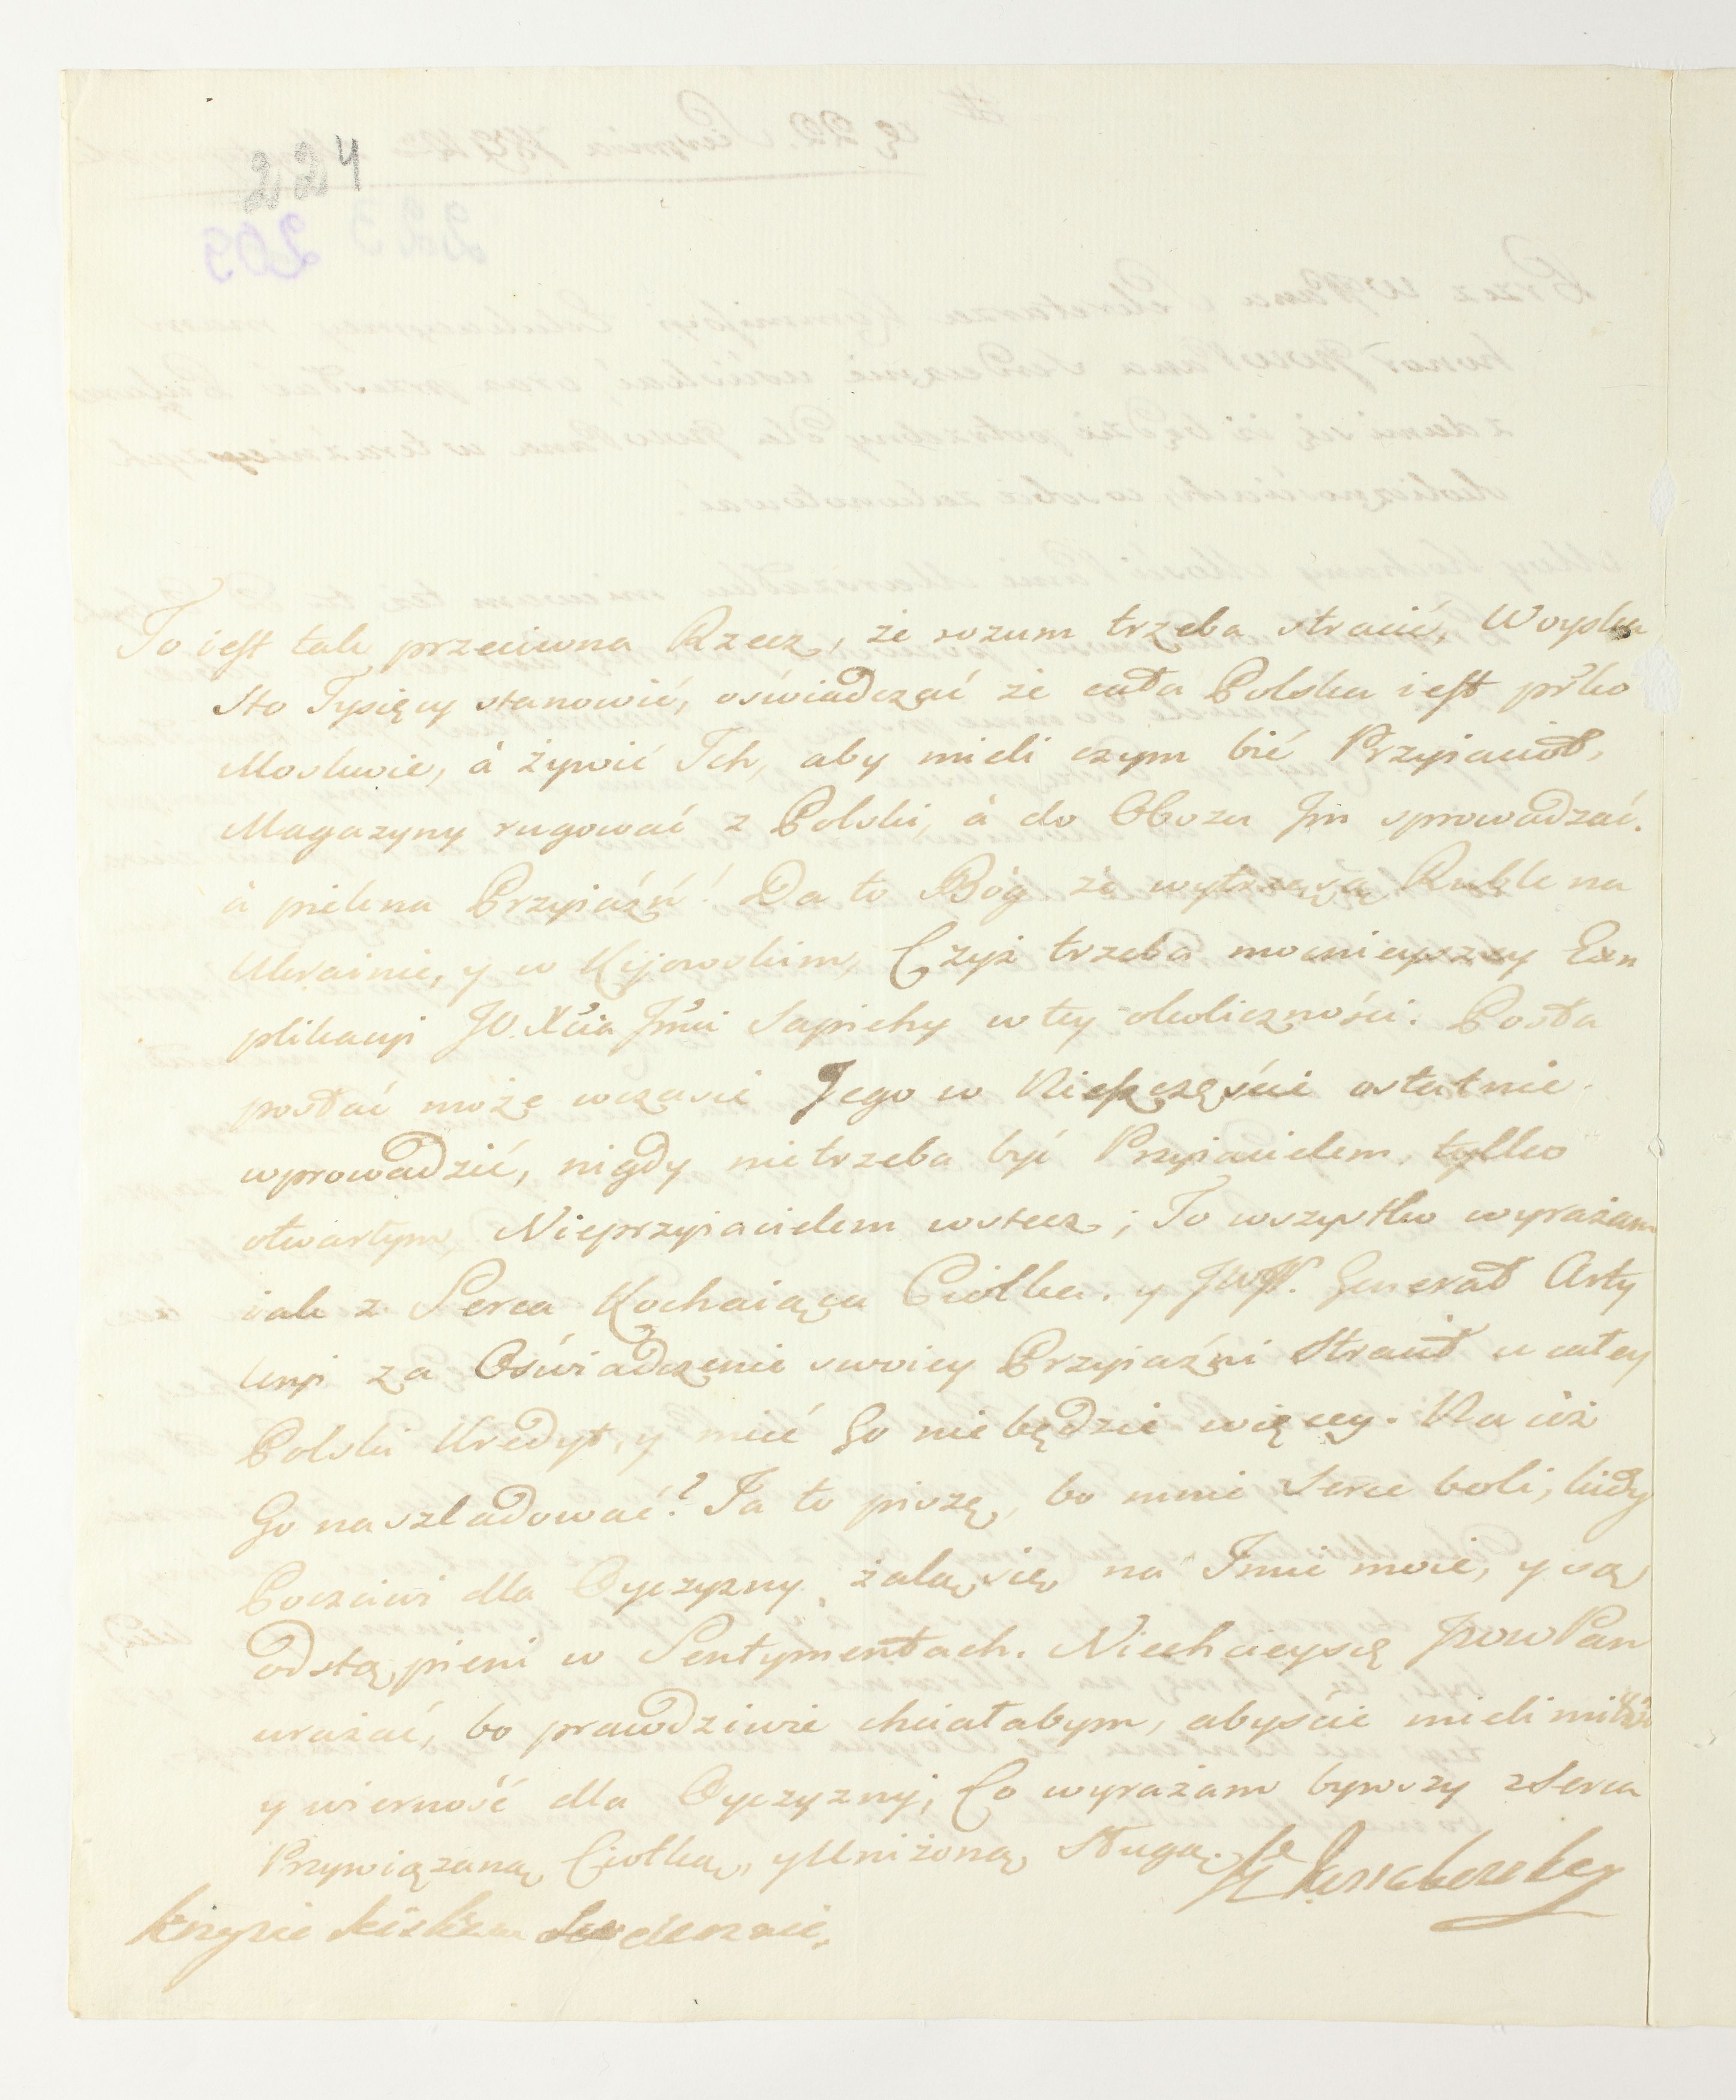 224
To iest tak przeciwna Rzecz, że rozum trzeba stracić, Woyska
Sto Tysięcy stanowić, oświadczać że cała Polska iest prko
Moskwie, à żywić Ich, aby mieli czym bić Przyiaciół,
Magazyny rugować z Polski, à do Obozu Im sprowadzać.
à piękna Przyiaźń! Da to Bóg że wytrzęsą Ruble na
Ukrainie, y w Kijowskim, Czyż trzeba mocnieyszey Ex
plikacyi JO Xcia Jmci Sapiehy w tey okoliczności: Posła
postać może wczasie Jego w Nieszczęście ostatnie
wprowadzić, nigdy nie trzeba być Przyiacielem, tylko
otwartym, Nieprzyiacielem wstecz; To wszystko wyrażam
iak z Serca Kochaiąca Ciotka, y JWP. Generał Arty
leryi za Oświadczenie swoiey Przyiaźni Stracił u całey
Polski Kredyt, y mieć Go nie będzie więcey. Na cóż
Go naszladować? Ja to piszę, bo mnie Serce boli, kiedy
Poczciwi dla Oyczyzny żalą się na Imie moie, y są
odstąpieni w Sentymentach. Niechcieysię JWWPan
urażać, bo prawdziwie chciałabym, abyście mieli miłość
y wierność dla Oyczyzny, Co wyrażam bywszy z Serca
Przywiązaną Ciotką, y Uniżoną Sługą.
Krzysie ściskam Serdecznie.